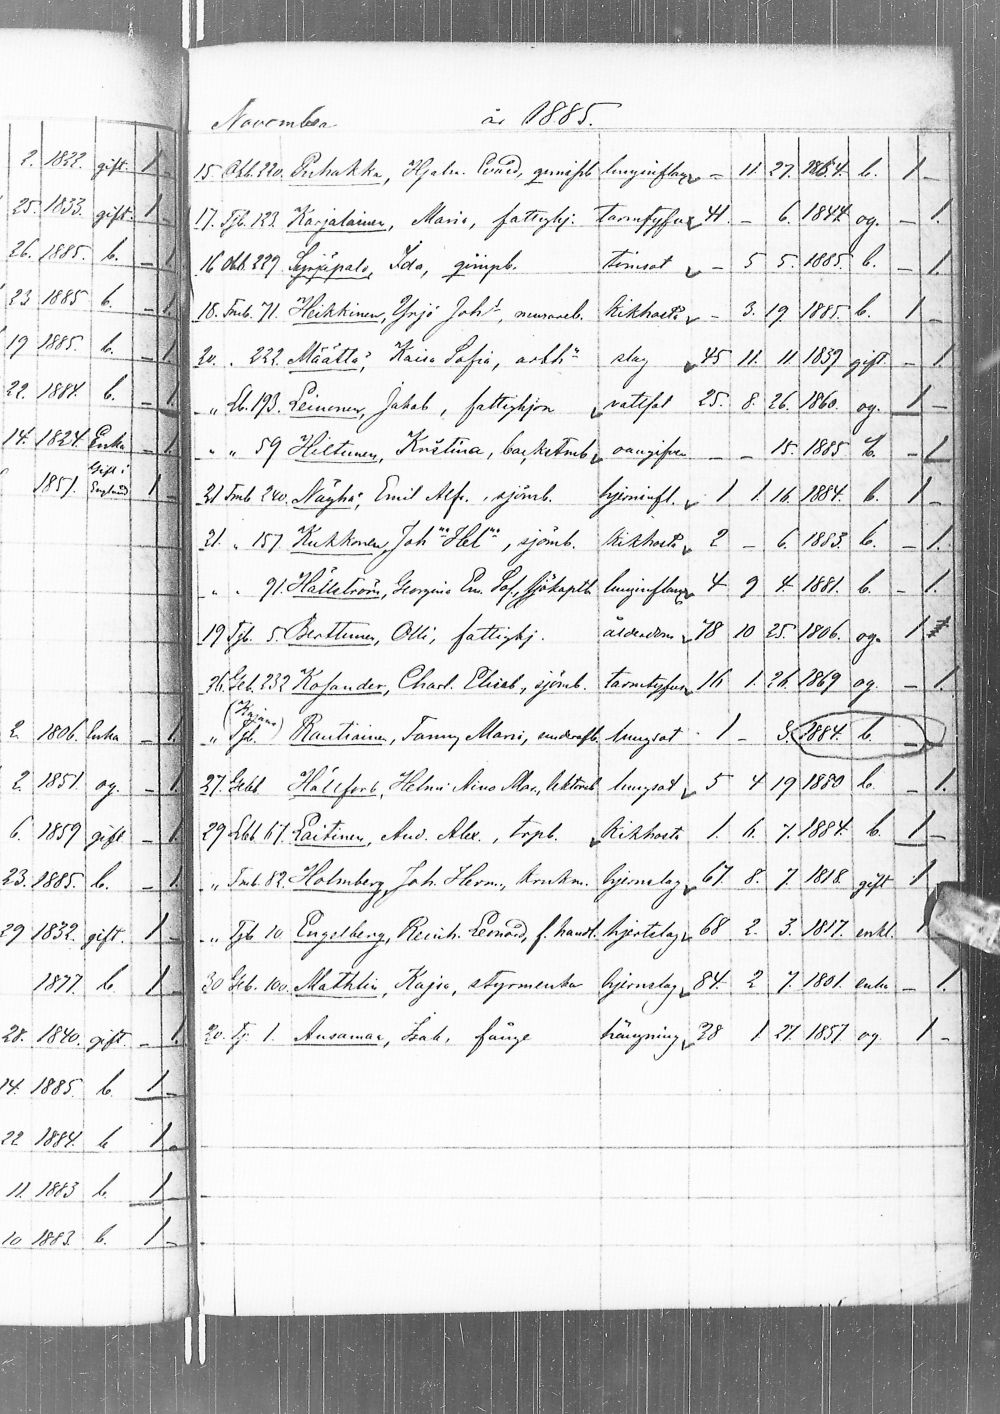 2. 1822. gift. 1 -
25. 1833. gift. 1 -
26. 1885. b. - 1.
23 1885 b. - 1.
19 1885. b. - 1.
22. 1884. b. - 1.
14. 1824. Enka - 1.
1851. Gift i England 1 -
2. 1806. Enka - 1.
2. 1851. og. - 1.
6. 1859 gift - 1.
23. 1885. b. - 1.
29 1832. gift. 1 -
1877. b. 1 -
28. 1840. gift. - 1.
14. 1885. b. 1 -
22 1884. b 1 -
11. 1883 b. 1 -
10 1883. b. 1 -
November år 1885.
15. 220. Puhakka, Hjalm. lunginflam - 11. 27. 1884. b. 1 -
17. Tjb. 123. Karjalainen, Maria, fattighj. tarmtyfus 41. - 6. 1844. og. - 1.
16 229. Ida, timsot - 5 5. 1885. b. - 1.
18. Tmb. 71. Heikkinen, Yrjö Joht, kikhosta - 3. 19. 1885. b. 1 -
20. " 222. Määttä, Kaisa Sofia, slag 45 11. 11 1839 gift. - 1.
" Eb. 193. Leinonen, Jakob, fattighjon vattsot 25. 8. 26. 1860. og. 1 -
" " 59 Hiltunen, Kristina, oangifven - - 15. 1885 b. - 1
21 Tmb 240. Näyhä, Emil Alf., sjömb. hjerninfl. 1 1. 16. 1884. b. 1 -
21. " 157 Kukkonen, Joh na Hel na, sjömb. kikhosta 2 - 6. 1883. b. - 1.
" " 91. Hällström, Georgina Em. Sof., sjökaptb lunginflam 4 9 4. 1881. b. - 1.
19 Tjb. 5. Berttunen, Olli, fattighj. ålderdom 78 10 25. 1806. og. 1
26. Geb. 232 Kosander, Charl. Elisab, sjömb. tarmtyfus 16 1. 26. 1869 og - 1.
" (Kajana) Tjb. Rautiainen, Fanny Maria, lungsot 1 - 3. 1884. b. -
27. Gebb Hällfors, Helmi Aino Mar., lektorsb lungsot 5 4 19 1880 b. - 1.
29 Ebb 67. Laitinen, And. Alex., torpb. kikhosta 1. 6. 7. 1884. b. 1 -
" Tmb. 82. Holmberg, Joh. Herm., hjernslag 67. 8. 7. 1818. gift 1
" Tjb 10 Engelberg, Reinh. Leonard, f. handl. hjertslag 68 2. 3. 1817. enkl. 1
30 Geb. 100. Mathlin, Kajsa, styrmenka hjernslag 84. 2 7. 1801. enka - 1.
20. Tj 1. Ansamaa, Isak, fånge hängning 28 1 27. 1857 og 1 -